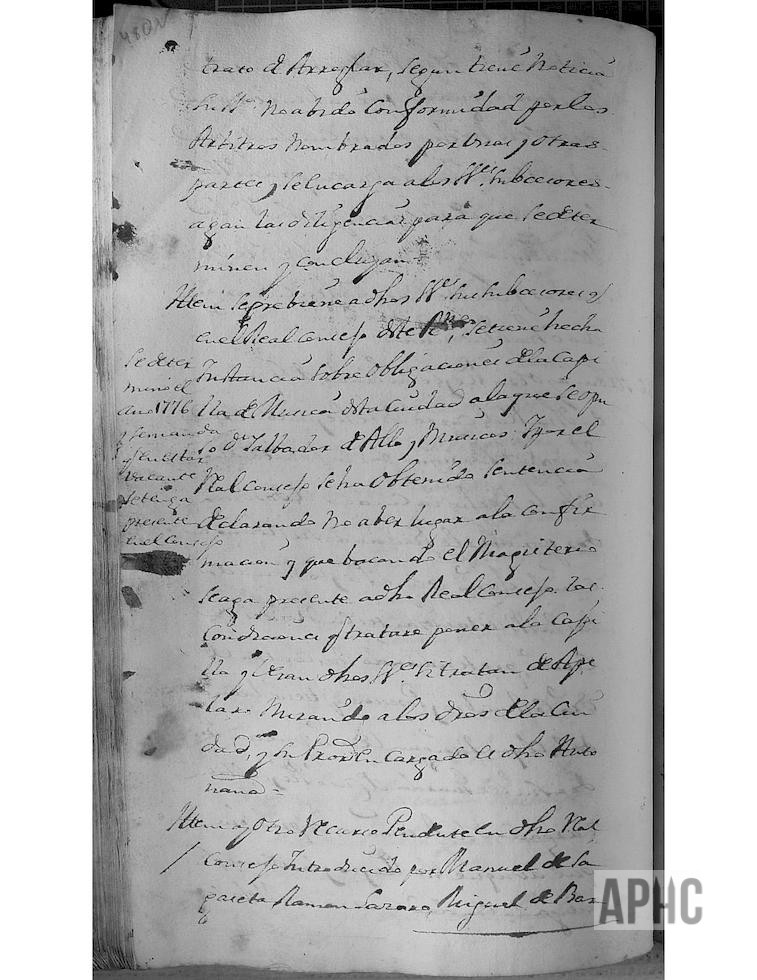 trato de Arreglar, segun tiene Noticia
su Sª no abido Conformidad por los
Arbitros Nombrados por Unas y otras
partes, y se encarga a los SSes. subcesores
agan las diligencias para que se deter
minen y concluyan =
Ittem se prebiene a dhos SSes. sus subcesores q
en el Real Consejo deste Rno, se tiene hecha
Instancia sobre obligaciones de la Capi
lla de Musica desta Ciudad a la que se opu
so Dn Salbador de Allo y Munarcos Y por el
Rl Consejo se ha obtenido sentencia
declarando no aber lugar a la confir
macion y que bacando el Magisterio
se aga presente a dho Real Consejo las
Condiciones q tratare poner a la Capi
lla y dhos SSes. tratan de Ape
lar Mirando a los dros de la Ciu
dad, y su Pror en cargado a dho
=
Ittem ay otro Recurso Pendiente en dho Real
Consejo Introducido por Manuel de Sa
gaseta Ramon Lazaro, Miguel de Bar
se deter
mino el
año 1776
y se manda
q en estar
vacante
se tenga
presente
en el Consejo
480V
APHC